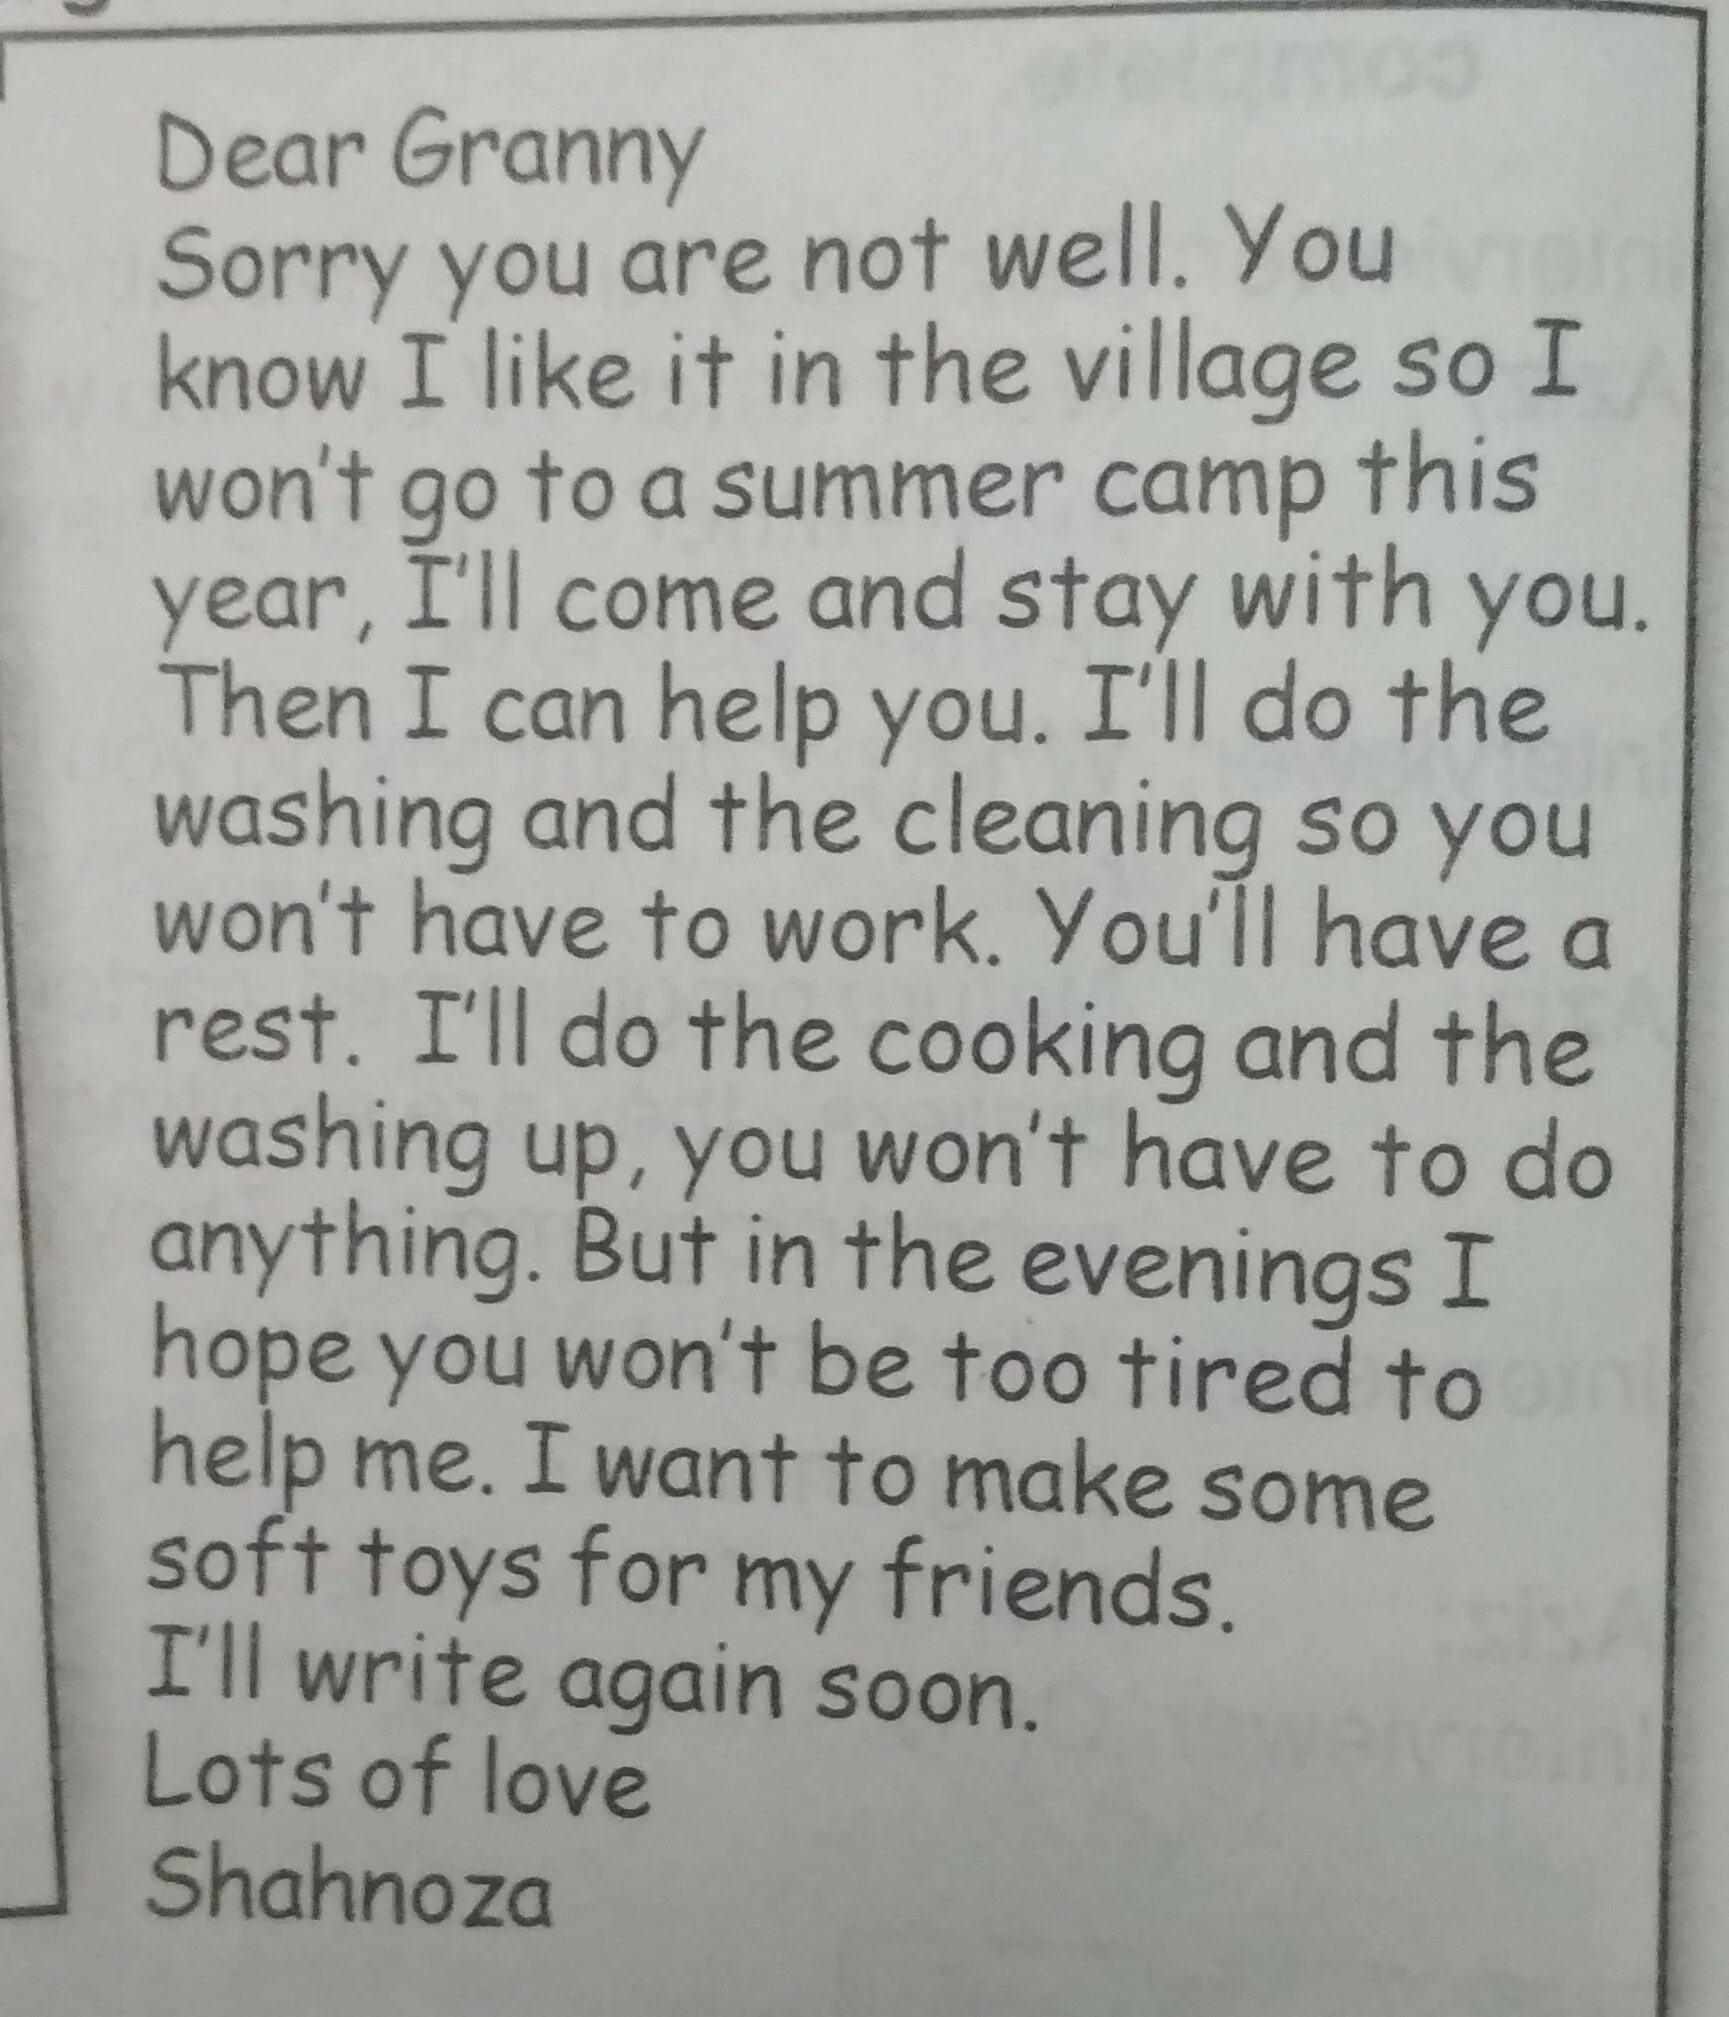 Dear Granny
Sorry you are not well. You
know I like it in the village so I
won't go to a summer camp this
year, I'll come and stay with you.
Then I can help you. I'll do the
washing and the cleaning so you
won't have to work. You'll have a
rest. I'll do the cooking and the
washing up, you won't have to do
anything. But in the evenings I
hope you won't be too tired to
help me. I want to make some
soft toys for my friends.
I'll write again soon.
Lots of love
Shahnoza